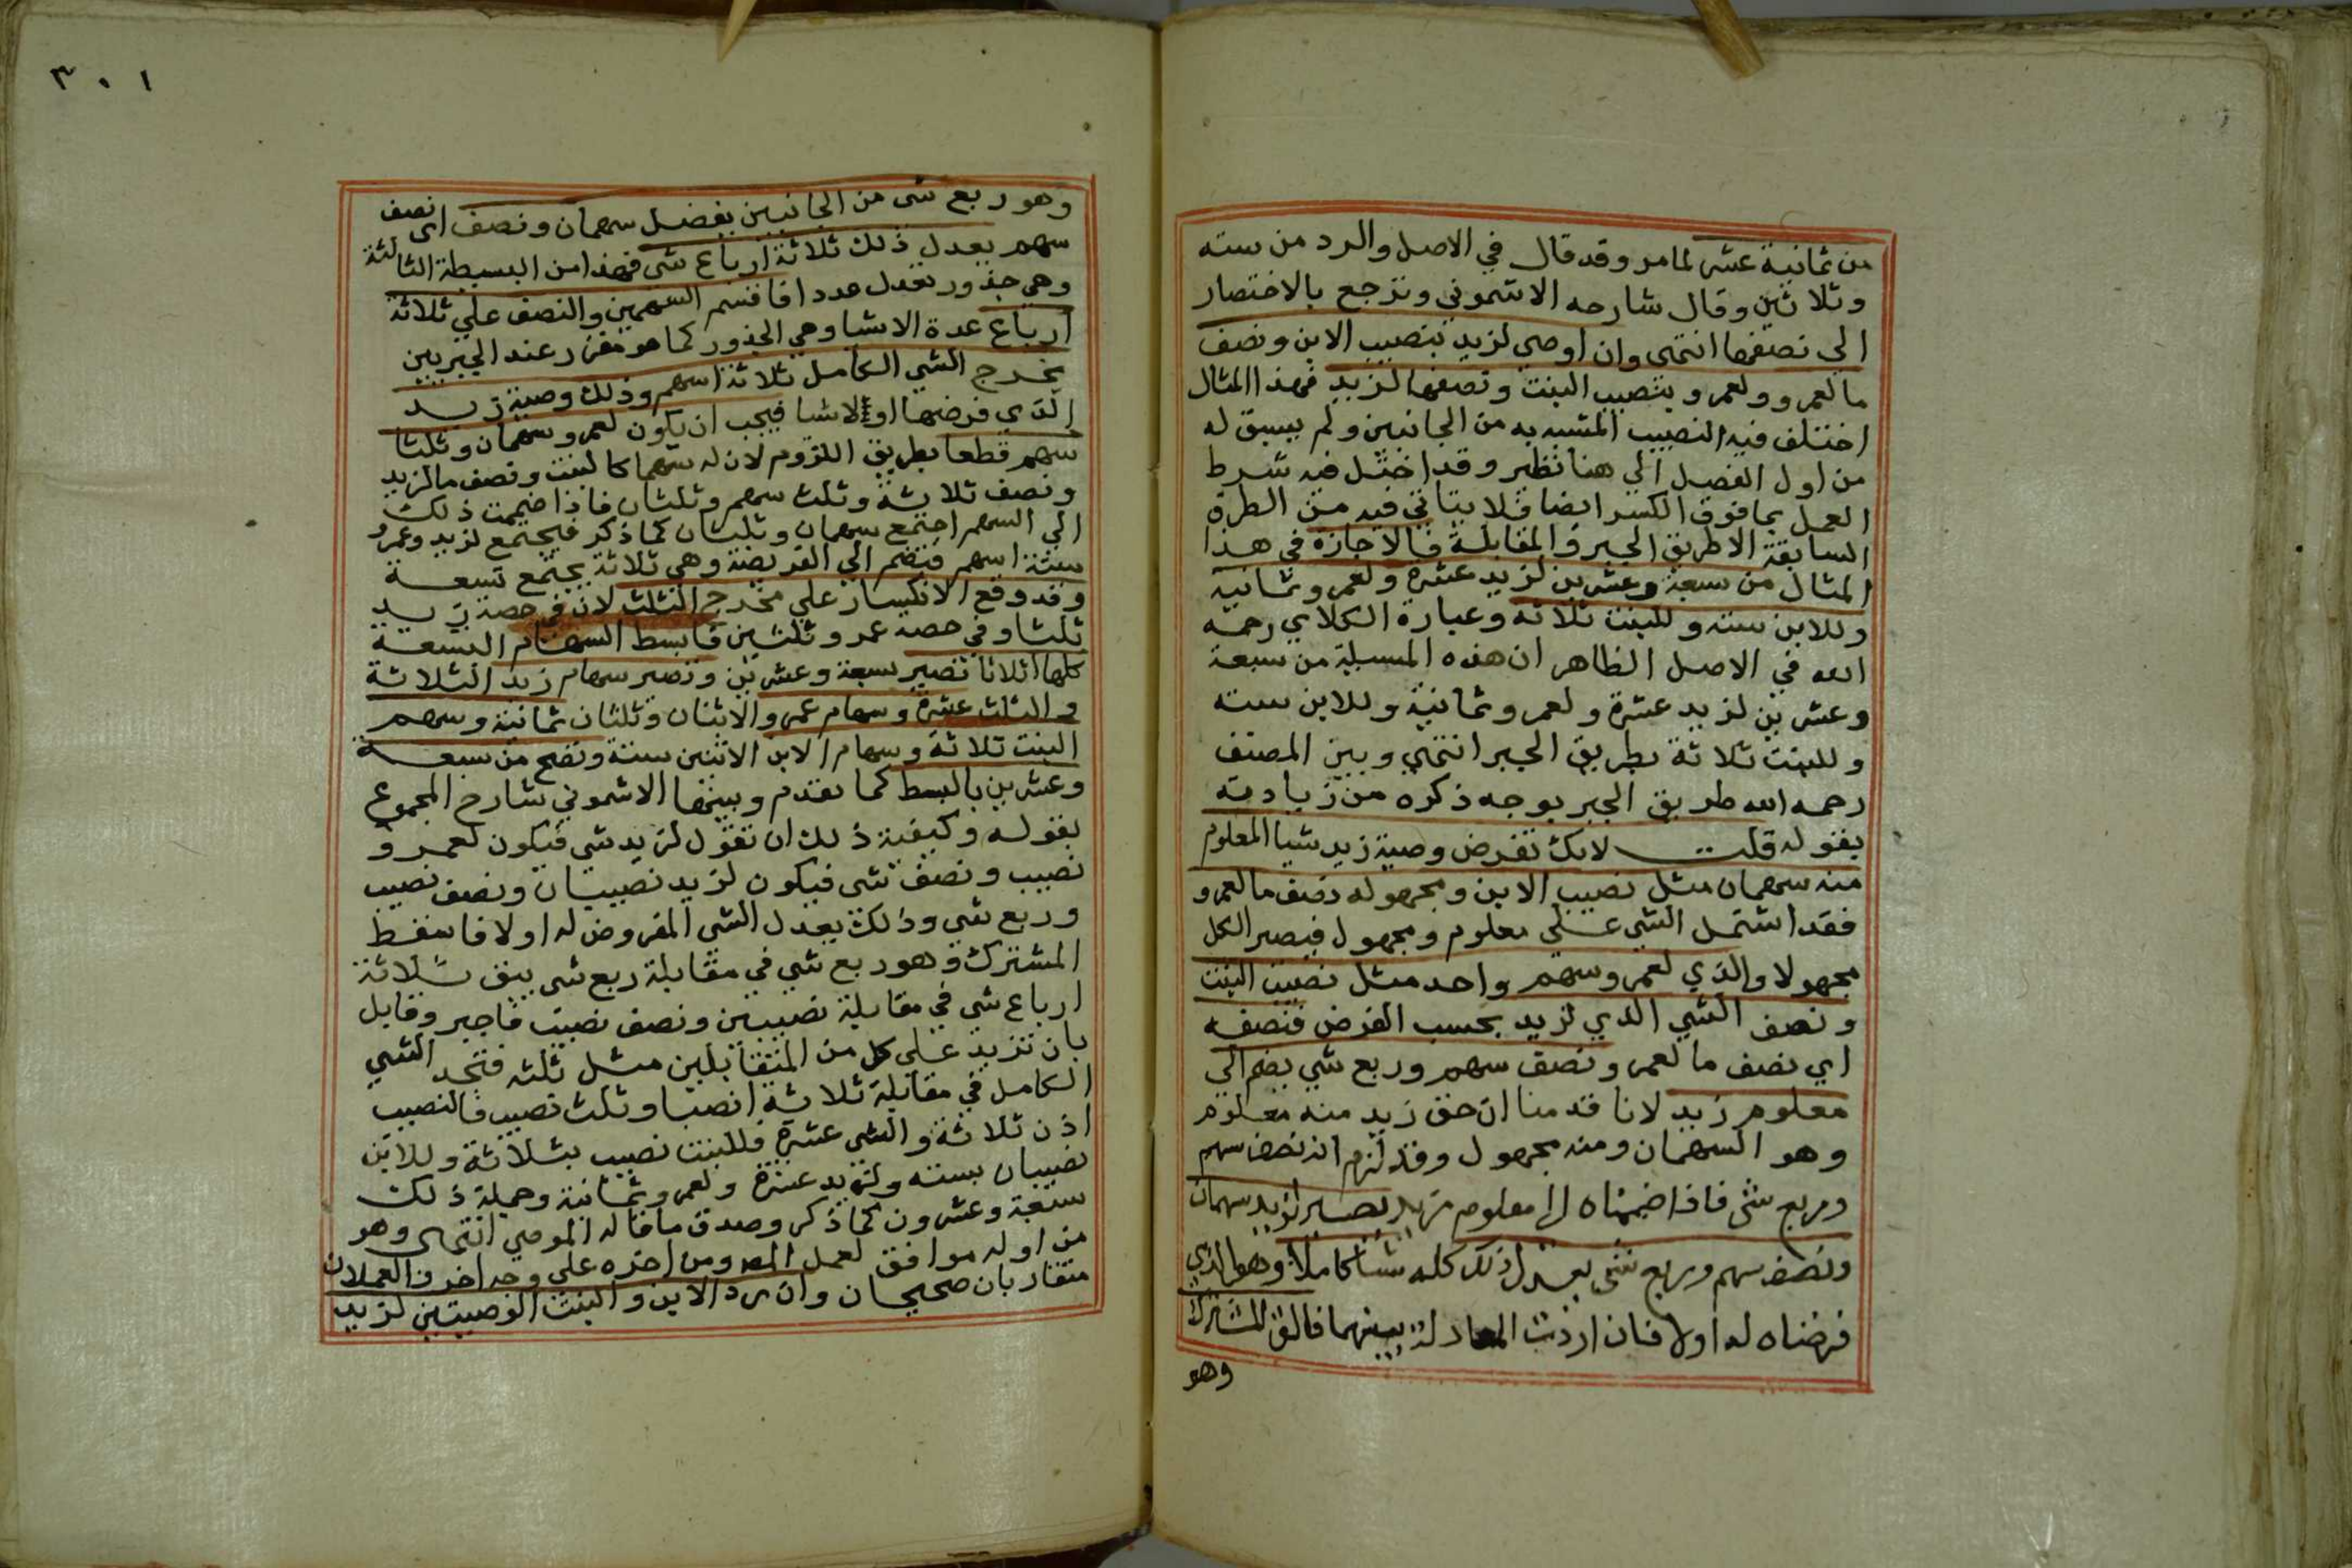 من ثمانية عشر لما مر وقد قال في الاصل والرد من سته
وثلاثين وقال شارحه الاشموني وترجع بالاختصار
الي نصفها انتهى وان اوصي لزيد بنصيب الابن ونصف
ما لعمرو ولعمرو بنصيب البنت ونصفها لزيد فهذا المثال
اختلف فيه النصيب المشبه به من الجانبين ولم يسبق له
من اول الفصل الي هنا نظير وقد اختل فيه شرط
العمل بما فوق الكسر ايضا فلا يتاتي فيه من الطرق
السابقة الا طريق الجبر والمقابلة فالاجازة في هذا
المثال من سبعة وعشرين لزيد عشرة ولعمرو ثمانية
وللابن سته وللبنت ثلاثه وعبارة الكلاي رحمه
الله في الاصل الظاهر ان هذه المسيلة من سبعة
وعشرين لزيد عشرة ولعمرو ثمانية وللابن سته
وللبنت ثلاثة بطريق الجبر انتهي وبين المصنف
رحمه الله طريق الجبر بوجه ذكره من زيادته
بقوله قلت لانك تفرض وصية زيد شيا المعلوم
منه سهمان مثل نصيب الابن ومجهوله نصف ما لعمرو
فقد اشتمل الشي علي معلوم ومجهول فيصير الكل
مجهولا والذي لعمرو سهم واحد مثل نصيب البنت
ونصف الشي الذي لزيد بحسب الفرض فنصفه
اي نصف ما لعمرو نصف سهم وربع شي يضم الي
معلوم زيد لانا قدمنا ان حق زيد منه معلوم
وهو السهمان ومنه مجهول وقد لزم انه نصف سهم
وربع شى فاذا ضممناه الى معلوم زيد يصير لزيد سهمان
ونصف سهم وربع شى يعدل ذلك كله شيا كاملا وهو الذي
فرضناه له اولا فان اردت المعادلة بينهما فالق المشترك
وهو
٣٠١
وهو ربع شى من الجانبين يفضل سهمان ونصف اى نصف
سهم يعدل ذلك ثلاثة ارباع شى فهذا من البسيطة الثالثة
وهي جذور تعدل عددا فاقسم السهمين والنصف علي ثلاثة
ارباع عدة الاشيا وهي الجذور كما هو مقرر عند الجبريين
يخرج الشي الكامل ثلاثة اسهم وذلك وصية زيد
الذي فرضها اولا شا فيجب ان يكون لعمرو سهمان وثلثا
سهم قطعا بطريق اللزوم لان له سهما كالبنت ونصف ما لزيد
ونصف ثلاثة وثلث سهم وثلثان فاذا ضممت ذلك
الي السهم اجتمع سهمان وثلثان كما ذكر فيجتمع لزيد وعمرو
ستة اسهم فتضم الي الفريضة وهي ثلاثة يجتمع تسعة
وقد وقع الانكسار علي مخرج الثلث لان في حصة زيد
ثلثا وفي حصه عمرو ثلثين فابسط السهام التسعة
كلها اثلاثا تصير سبعة وعشرين وتصير سهام زيد الثلاثة
والثلث عشرة وسهام عمرو الاثنان وثلثان ثمانية وسهم
البنت ثلاثة وسهام الابن الاثنين ستة وتصح من سبعة
وعشرين بالبسط كما تقدم وبينها الاشموني شارح المجموع
بقوله وكيفية ذلك ان تقول لزيد شي فيكون لعمرو
نصيب ونصف شى فيكون لزيد نصيبان ونصف نصيب
وربع شي وذلك يعدل الشى المفروض له اولا فاسقط
المشترك وهو ربع شي في مقابلة ربع شى يبق ثلاثة
ارباع شى في مقابلة نصيبين ونصف نصيب فاجبر وقابل
بان تزيد علي كل من المتقابلين مثل ثلثه فتجد الشي
الكامل في مقابلة ثلاثة انصبا وثلث نصيب فالنصيب
اذن ثلاثة والشى عشرة فللبنت نصيب بثلاثة وللابن
نصيبان بسته ولزيد عشرة ولعمرو ثمانية وجملة ذلك
سبعة وعشرون كما ذكر وصدق ما قاله الموصي انتهى وهو
من اوله موافق لعمل المص ومن اخره علي وجه اخر فالعملان
متقاربان صحيحان وان رد الابن والبنت الوصيتين لزيد